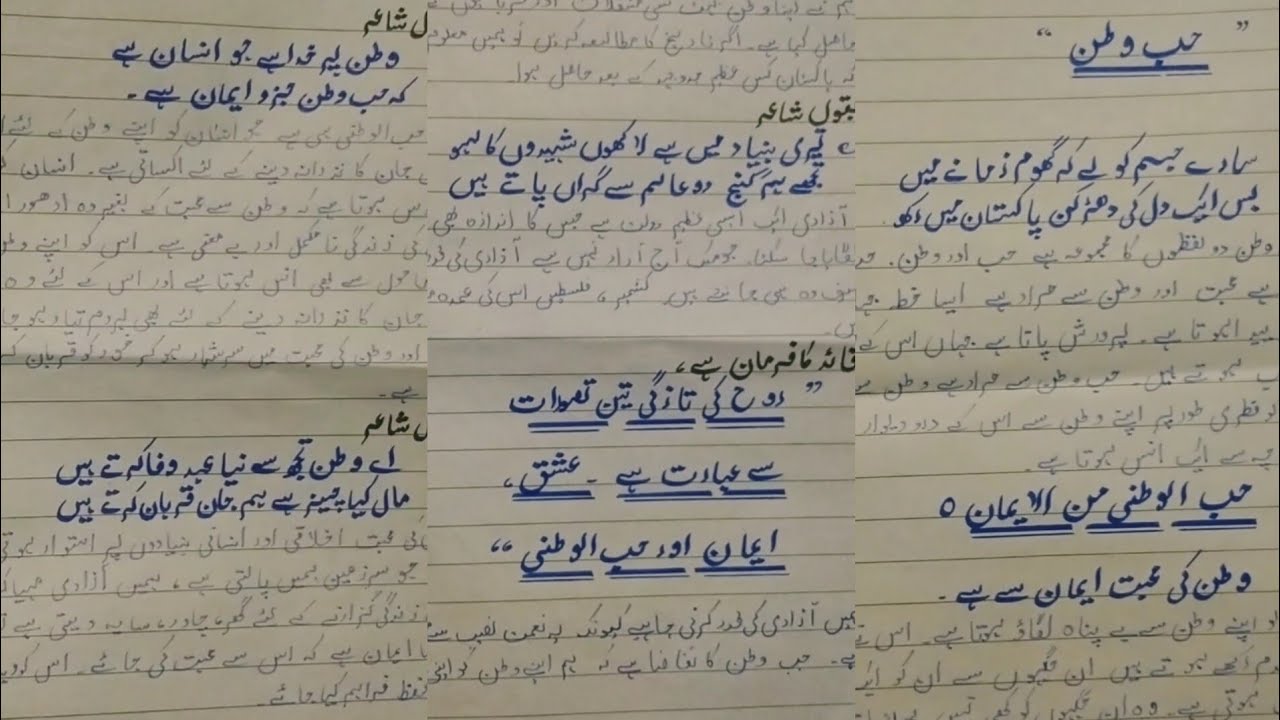 ” حب وطن “
سارے جسم کو لے کہ گھوم زمانے میں
بس ایک دل کی دھڑکن پاکستان میں رکھ
وطن دو لفظوں کا مجموعہ ہے حب اور وطن۔
سے محبت اور وطن سے مراد ہے ایسا خطہ جہ
پیدا ہوتا ہے۔ پرورش پاتا ہے جہاں اس کے
ب ہوتے ہیں۔ حب وطن سے مراد ہے وطن سے
و فطری طور پر اپنے وطن سے اس کے درو دیوار
چہ سے ایک انس ہوتا ہے۔
حب الوطنی من الایمان ٥
وطن کی محبت ایمان سے ہے۔
و اپنے وطن سے بے پناہ لگاؤ ہوتا ہے۔ اس
ہوتے ہیں ان جگہوں سے ان کو
ہوتی ہے۔ وہ ان جگہوں کو کبھی نہیں
حاصل کیا ہے۔ اگر تاریخ کا مطالعہ کریں تو ہمیں معلوم
کہ پاکستان کس عظیم جدوجہد کے بعد حاصل ہوا۔
بقول شاعر
تیری بنیاد میں ہے لاکھوں شہیدوں کا لہو
تجھے ہم گنج دو عالم سے گراں پاتے ہیں
آزادی ایک ایسی عظیم دولت ہے جس کا اندازہ بھی
لگایا جا سکتا۔ جو ممک آج آزاد نہیں ہے آزادی کی قدر
صرف وہ ہی جانتے ہیں۔ کشمیر، فلسطین اس کی عمدہ
قائد کا فرمان ہے،
” روح کی تازگی تین تصورات
سے عبارت ہے ۔ عشق،
ایمان اور حب الوطنی “
ہمیں آزادی کی قدر کرنی چاہیے کیونکہ یہ نعمت نصیب سے
ہے۔ حب وطن کا تقاضا ہے کہ ہم اپنے وطن کو
ل شاعر
وطن پہ فدا ہے جو انسان ہے
کہ حب وطن جزو ایمان ہے۔
حب الوطنی ہی ہے جو انسان کو اپنے وطن کے لئے
جان کا نذرانہ دینے کے لئے اکساتی ہے۔ انسان
س ہوتا ہے کہ وطن سے محبت کے بغیر وہ ادھورا
کی زندگی نا مکمل اور بے معنی ہے۔ اس کو اپنے وطن
ماحول سے بھی انس ہوتا ہے اور اس کے لئے وہ
جان کا نذرانہ دینے کے لئے بھی ہر دم تیار ہو جا
اور وطن کی محبت میں سرشار ہو کر خود کو قربان کر
ہے۔
ل شاعر
اے وطن تجھ سے نیا عہد وفا کرتے ہیں
مال کیا چیز ہے ہم جان قربان کرتے ہیں
کی محبت اخلاقی اور انسانی بنیادوں پر استوار ہوتی
جو سرزمین ہمیں پالتی ہے، ہمیں آزادی مہیا
زندگی گزارنے کے لئے گھر، چادر، سایہ دیتی ہے
ایمان ہے کہ اس سے محبت کی جائے۔ اس کو
تحفظ فراہم کیا جائے۔